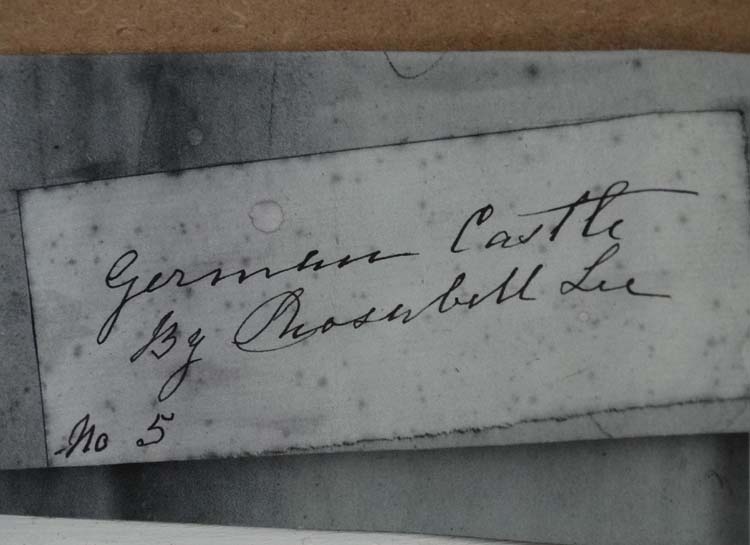 German Castle
By Rosabell Lee
No 5